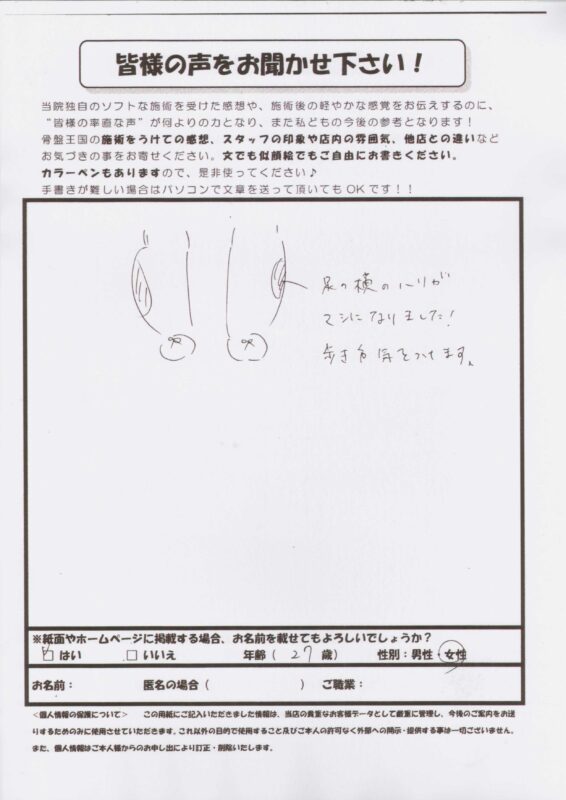 皆様の声をお聞かせ下さい！
当院独自のソフトな施術を受けた感想や、施術後の軽やかな感覚をお伝えするのに、
“皆様の率直な声”が何よりの力となり、また私どもの今後の参考となります！
骨盤王国の施術をうけての感想、スタッフの印象や店内の雰囲気、他店との違いなど
お気づきの事をお寄せください。文でも似顔絵でもご自由にお書きください。
カラーペンもありますので、是非使ってください♪
手書きが難しい場合はパソコンで文章を送って頂いてもOKです！！
足の横のハリが
マシになりました！
歩き方気をつけます。
※紙面やホームページに掲載する場合、お名前を載せてもよろしいでしょうか？
□はい　□いいえ　年齢（27歳）　性別：男性・女性
お名前：　匿名の場合（　　）ご職業：
＜個人情報の保護について＞　この用紙にご記入いただきました情報は、当店の貴重なお客様データとして厳重に管理し、今後のご案内をお送
りするためのみに使用させていただきます。これ以外の目的で使用すること及びご本人の許可なく外部への開示・提供する事は一切ございません。
また、個人情報はご本人様からのお申し出により訂正・削除いたします。